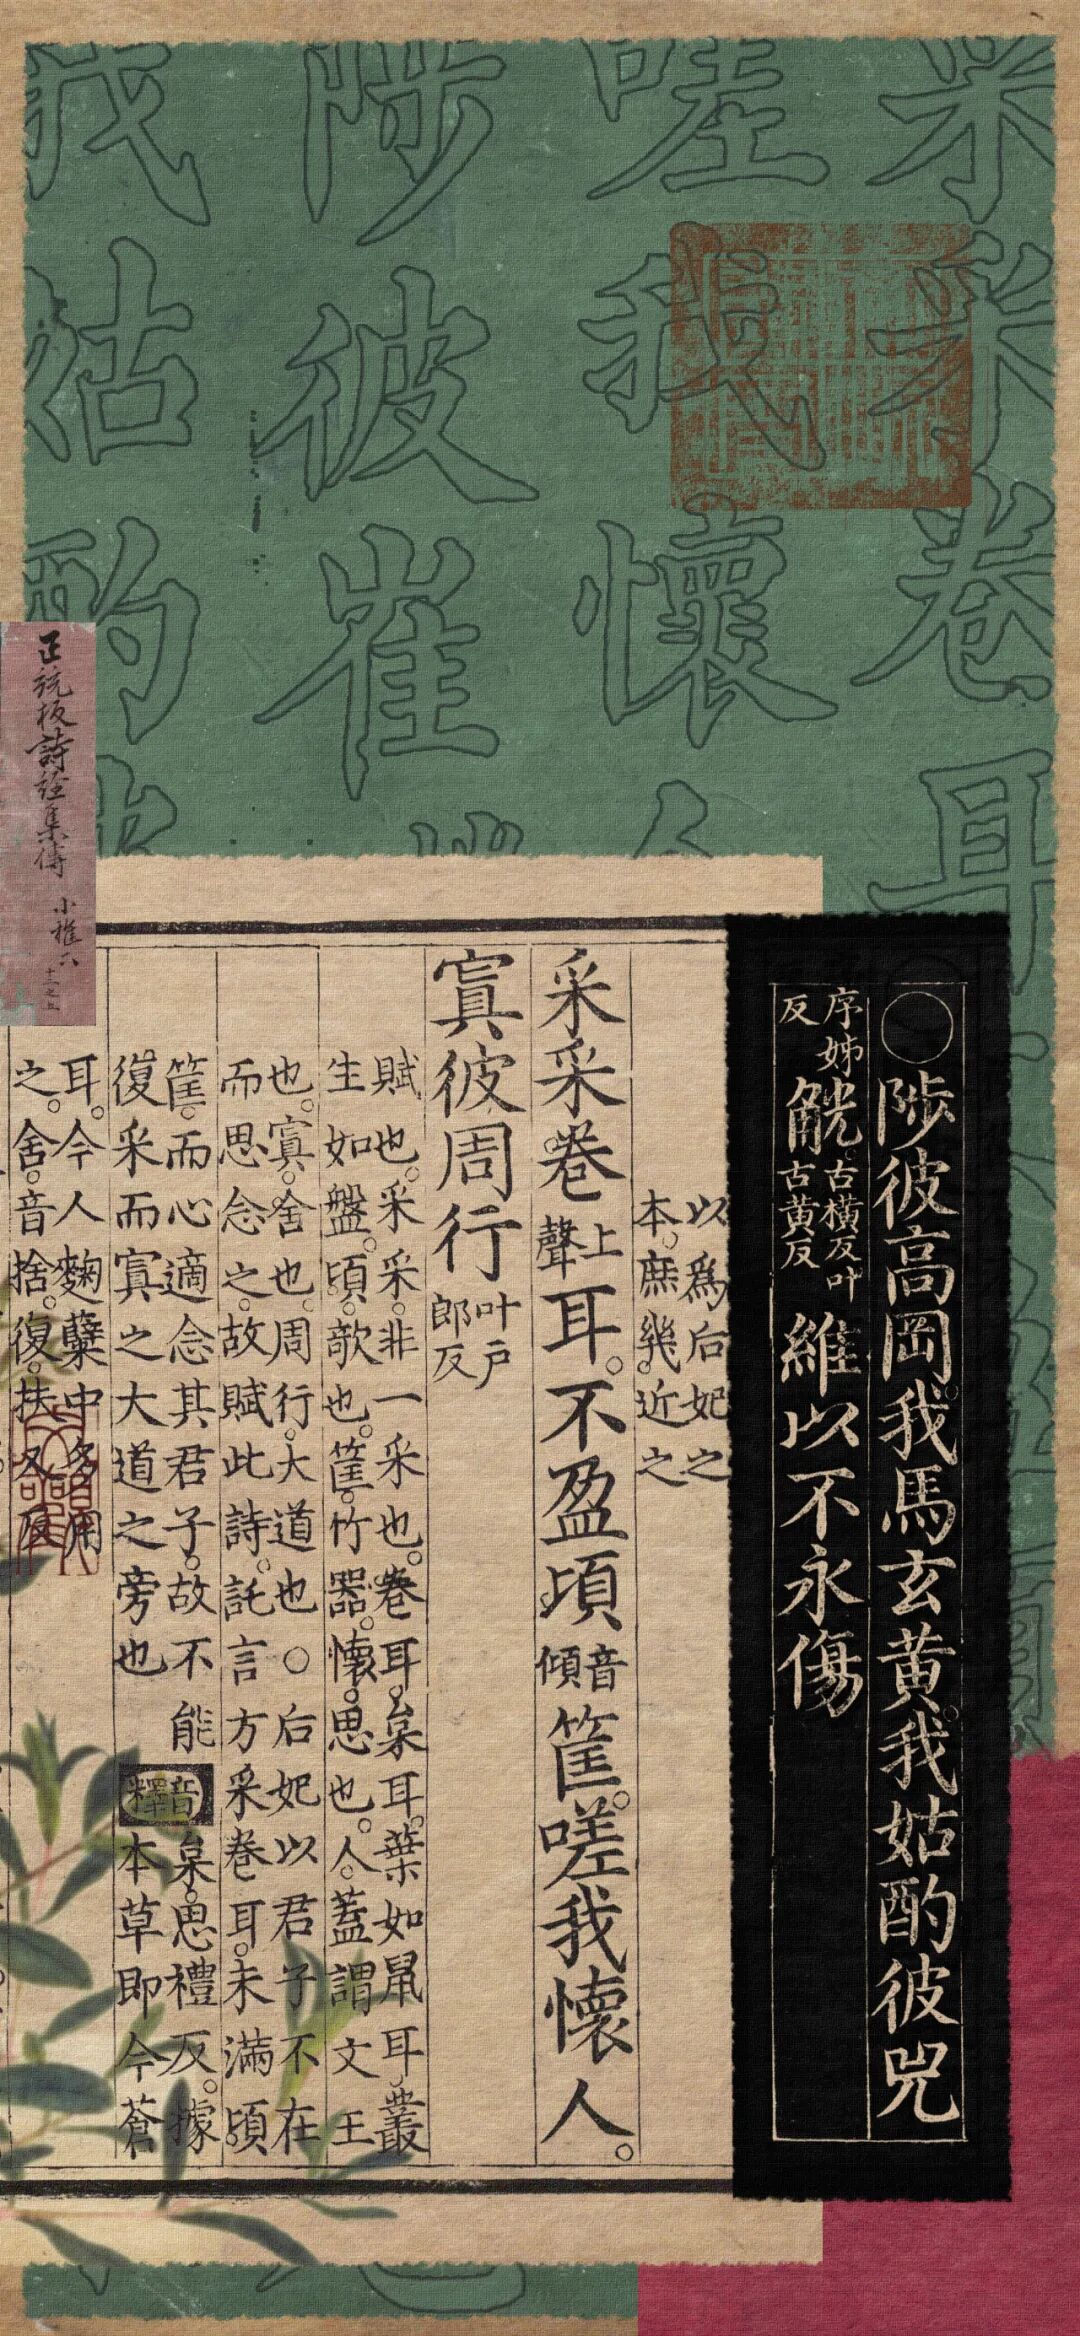 采采卷耳
嗟我懷人
陟彼崔
我姑酌
正統板詩經集傳
○陟彼高岡。我馬玄黃。我姑酌彼兕
觥。序姊反 古橫反叶古黃反 維以不永傷
以爲后妃之
本。庶幾近之
采采卷上聲耳。不盈頃音傾筐。嗟我懷人。
寘彼周行叶戶郎反
賦也。采采。非一采也。卷耳。枲耳。葉如鼠耳。叢
生如盤。頃。欹也。筐。竹器。懷。思也。人。蓋謂文王
也。寘。舍也。周行。大道也○后妃以君子不在
而思念之。故賦此詩。託言方采卷耳。未滿頃
筐。而心適念其君子。故不能
復采而寘之大道之旁也
音釋
枲。思禮反。據
本草即今蒼
耳。今人麴糵中多用
之。舍。音捨。復。扶又反